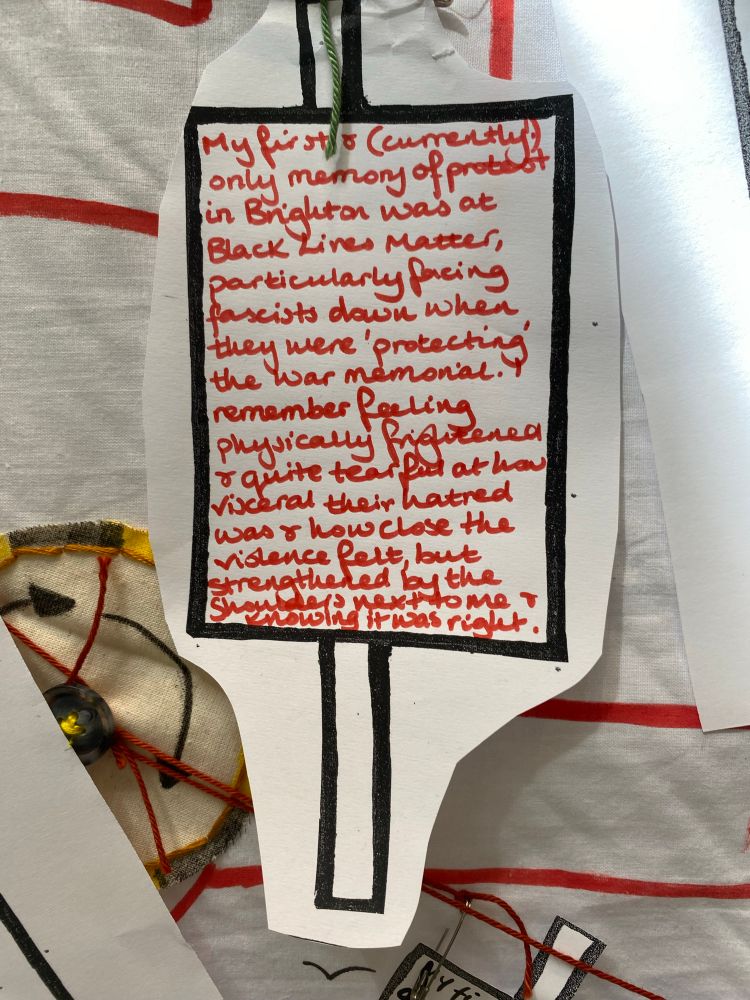 My first & (currently!)
only memory of protest
in Brighton was at
Black Lives Matter,
particularly facing
fascists down when
they were 'protecting'
the war memorial. I
remember feeling
physically frightened
& quite tearful at how
visceral their hatred
was & how close the
violence felt, but
strengthened by the
shoulders next to me &
knowing it was right.
My fi